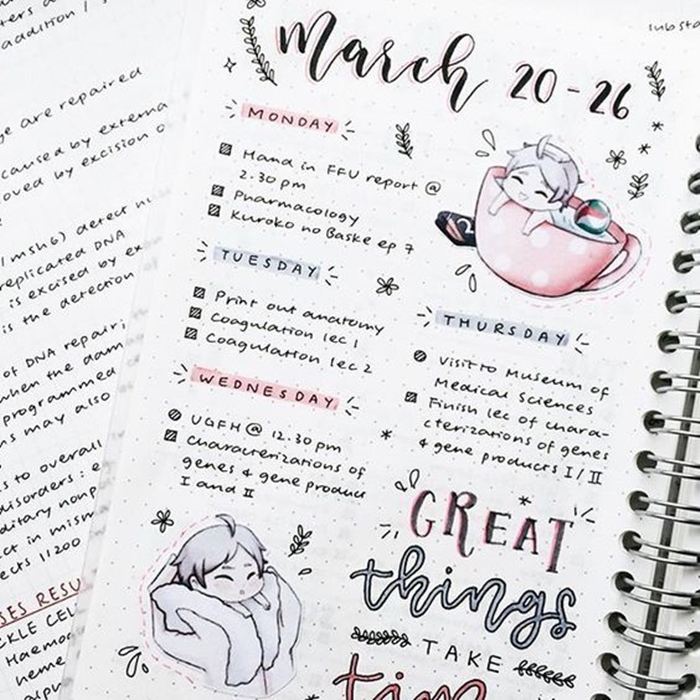 March 20-26
MONDAY
Hand in FFU report @
2.30 pm
Pharmacology
Kuroko no Baske ep 7
TUESDAY
Print out anatomy
Coagulation lec 1
Coagulation lec 2
WEDNESDAY
UGFH @ 12.30 pm
Characterizations of
genes & gene product
I and II
THURSDAY
Visit to Museum of
Medical Sciences
Finish lec of chara-
cterizations of genes
& gene products I / II
GREAT
things
TAKE
time
addition /
are repaired
caused by externa
by excision o
(msh6) detect
replicated DNA
is excised by
is the detection
of DNA repair;
when the dam
programmed
may also
to overall
disorders:
in mism
11200
RESU
CEL
Haemo
heme